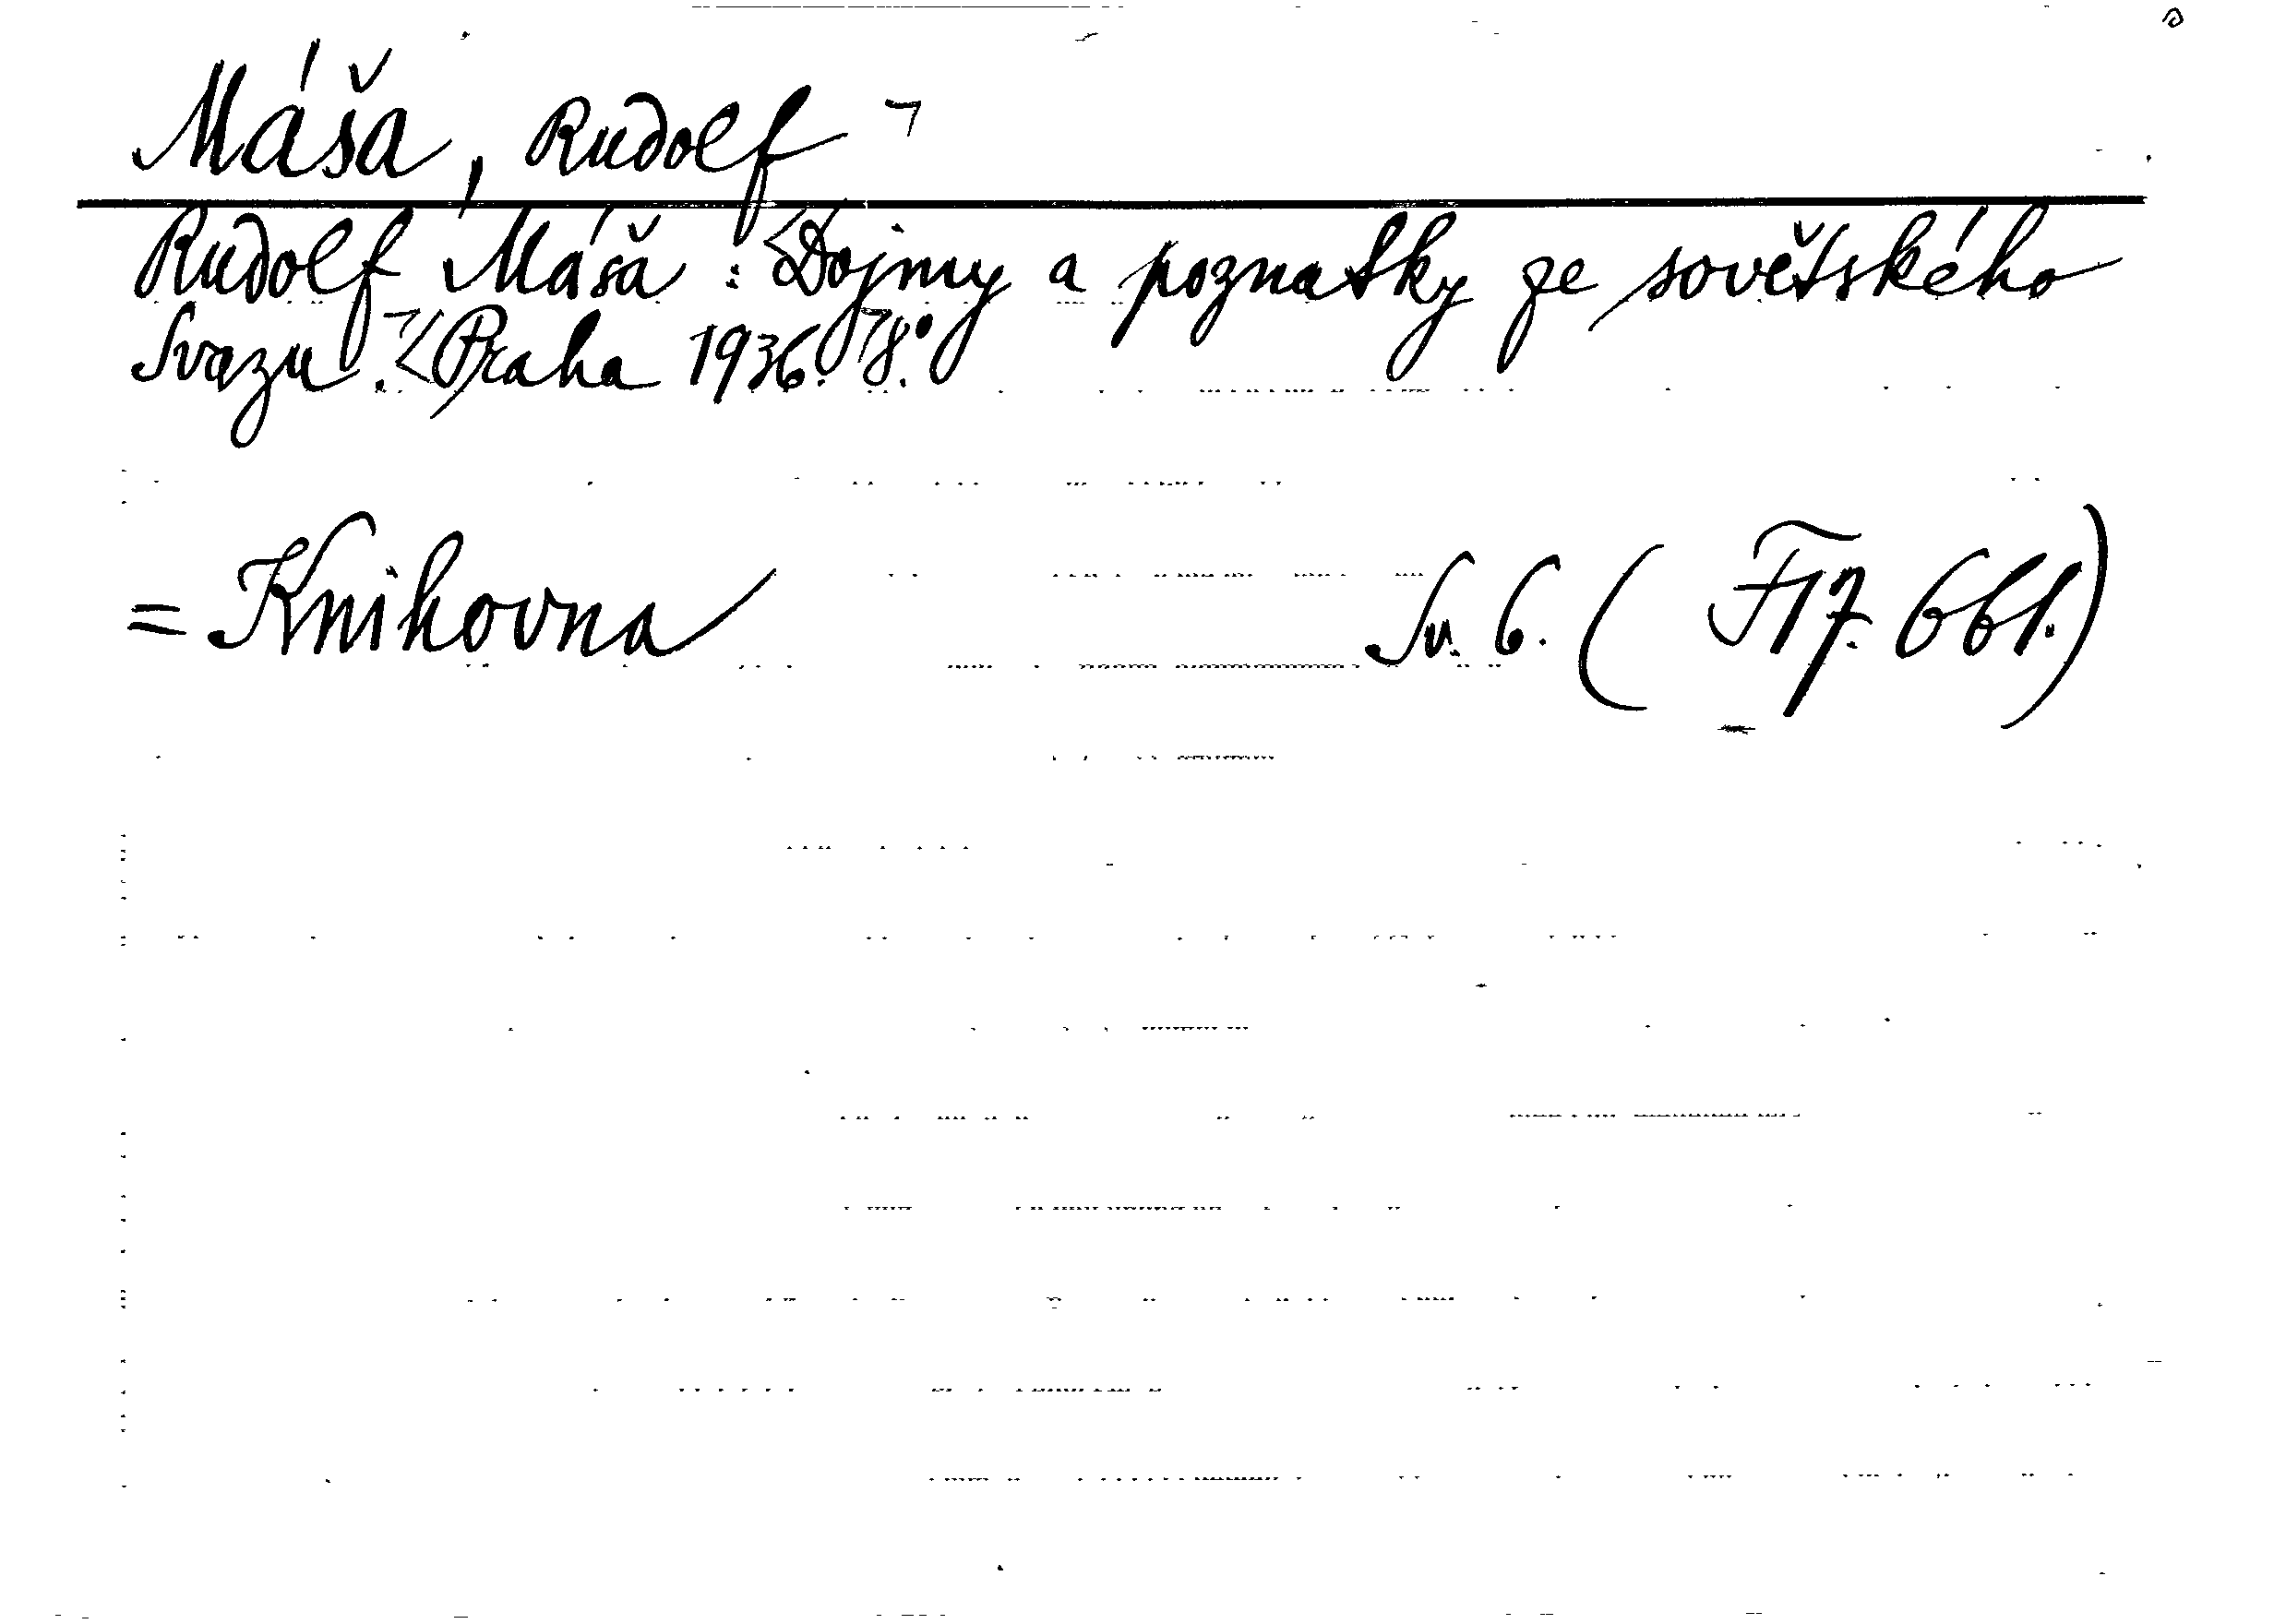 Máša, Rudolf ¬
Rudolf Máša: <Dojmy a poznatky ze sovětského
Svazu.¬ <Praha 1936.¬ 8.°
= Knihovna Sv. 6. ( F17. 661.)